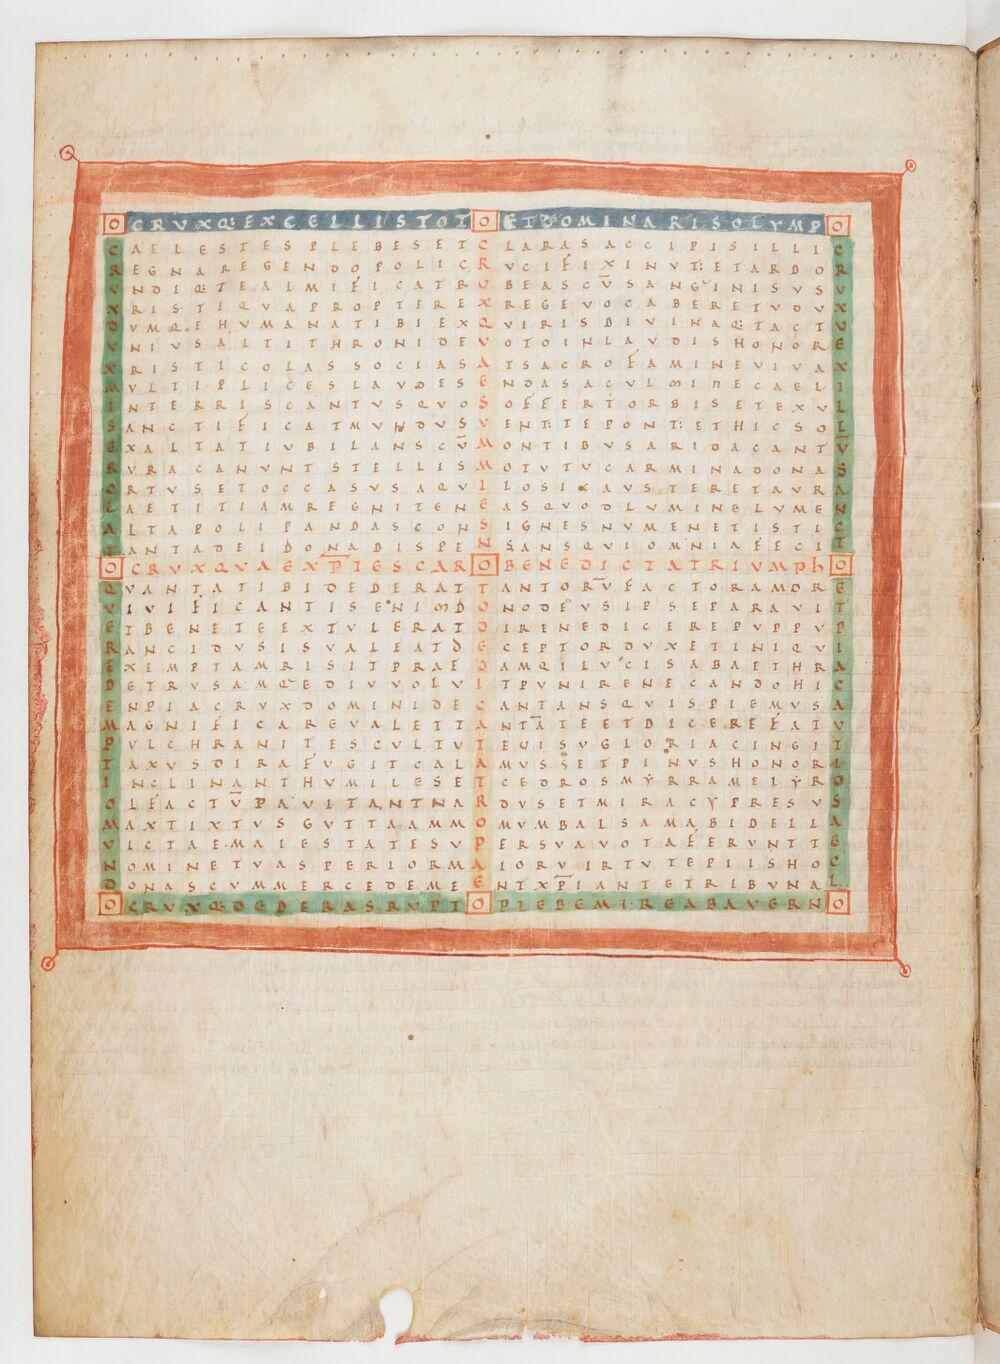 OCRVXQ:EXCELLISTOTOETDOMINARISOLYMPO
CAELESTESPLEBESETCLARASACCIPISILLIC
REGNAREGENDOPOLICRVCIFIXINVT:ETARBOR
VNDIQ:TEALMIFICATRVBEASCV̄SANGINISVSV
XRISTIQVAPROPTEREXREGEVOCABERETVDVX
DVMQ:EHVMANATIBIEXQVIRISDIVINAQ:TACTV
VNIVSALTITHRONIDEVOTOINLAVDISHONORE
XRISTICOLASSOCIASATSACROFAMINEVIVAX
MVLTIPLICESLAVDESENDASACVLMINECAELI
INTERRISCANTVSQVOSOFFERTORBISETEXVL
SANCTIFICATMVNDVSVENT:TEPONT:ETHICSOL
EXALTATIVBILANSCV̄MONTIBVSARIDACANTV̄
RVRACANVNTSTELLISMOTVTVCARMINADONAS
ORTVSETOCCASVSAQVILOSIXAVSTERETAVRA
LAETITIAMREGNITENEASQVODLVMINELVMEN
ALTAPOLIPANDASCONSIGNESNVMENETISTIC
TANTADEIDONABISPENSANSQVIOMNIAFECIT
OCRVXQVAEXP̄IESCAROBENEDICTATRIVMPhO
QVANTATIBIDEDERATTANTORV̄FACTORAMORE
VIVIFICANTISENIMDONODEVSIPSEPARAVIT
ETBENETEEXTVLERATDIRENEDICEREPVPPVP
RANCIDVSISVALEATDECEPTORDVXETINIQVI
EXEMPTAMRISITPRAEDAMQILVCISABAETHRA
DETRVSAMQ:EDIVVOLVITPVNIRENECANDOHIC
ENPIACRVXDOMINIDECANTANSQVISPIEMVSA
MAGNIFICAREVALETTANTĀTEETDICEREFATV
PVLCHRANITESCVLTVTEVISVGLORIACINGIT
TAXVSDIRAFVGITCALAMVSSETPINVSHONORI
INCLINANTHVMILESETCEDROSMYRRAMELYRO
OLFACTV̄PAVITANTNARDVSETMIRACYPRESVS
MAXTIXTVSGVTTAAMMOMVMBALSAMABIDELLA
VICTAEMAIESTATESVPERSVAVOTAFERVNTTE
NOMINETVASPERIORMAIORVIRTVTEPIISHOC
DONASCVMMERCEDEMEENTXP̄IANTETRIBVNAL
OCRVXQ:DEDERASRVPTOPLEBEMIREABAVERNO